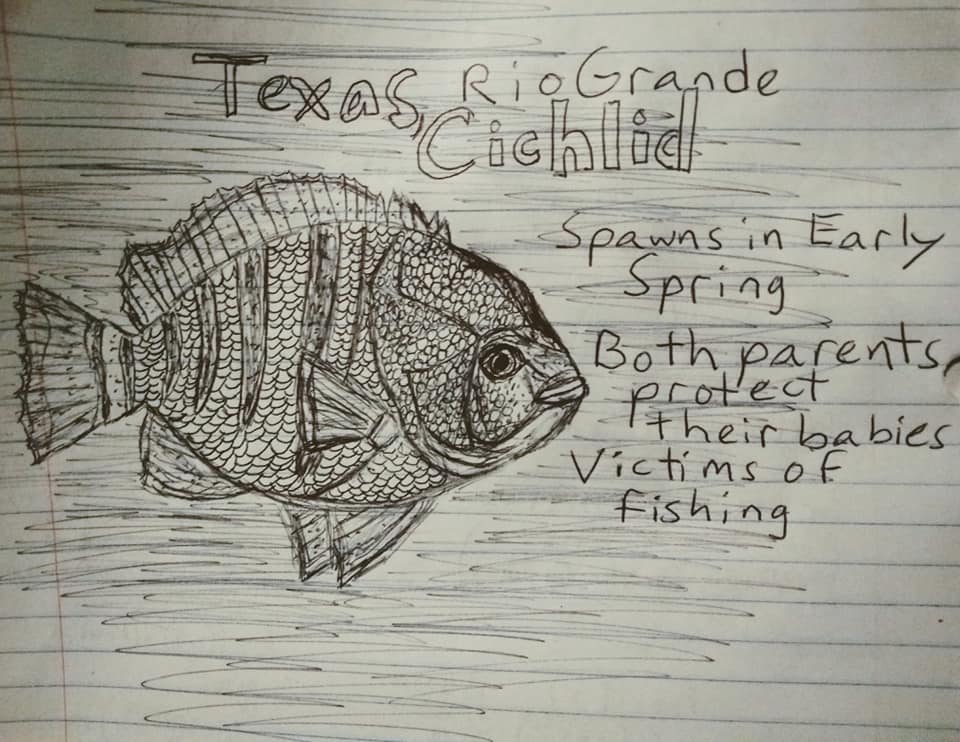 Texas, Rio Grande
Cichlid
Spawns in Early
Spring
Both parents
protect
their babies
Victims of
fishing